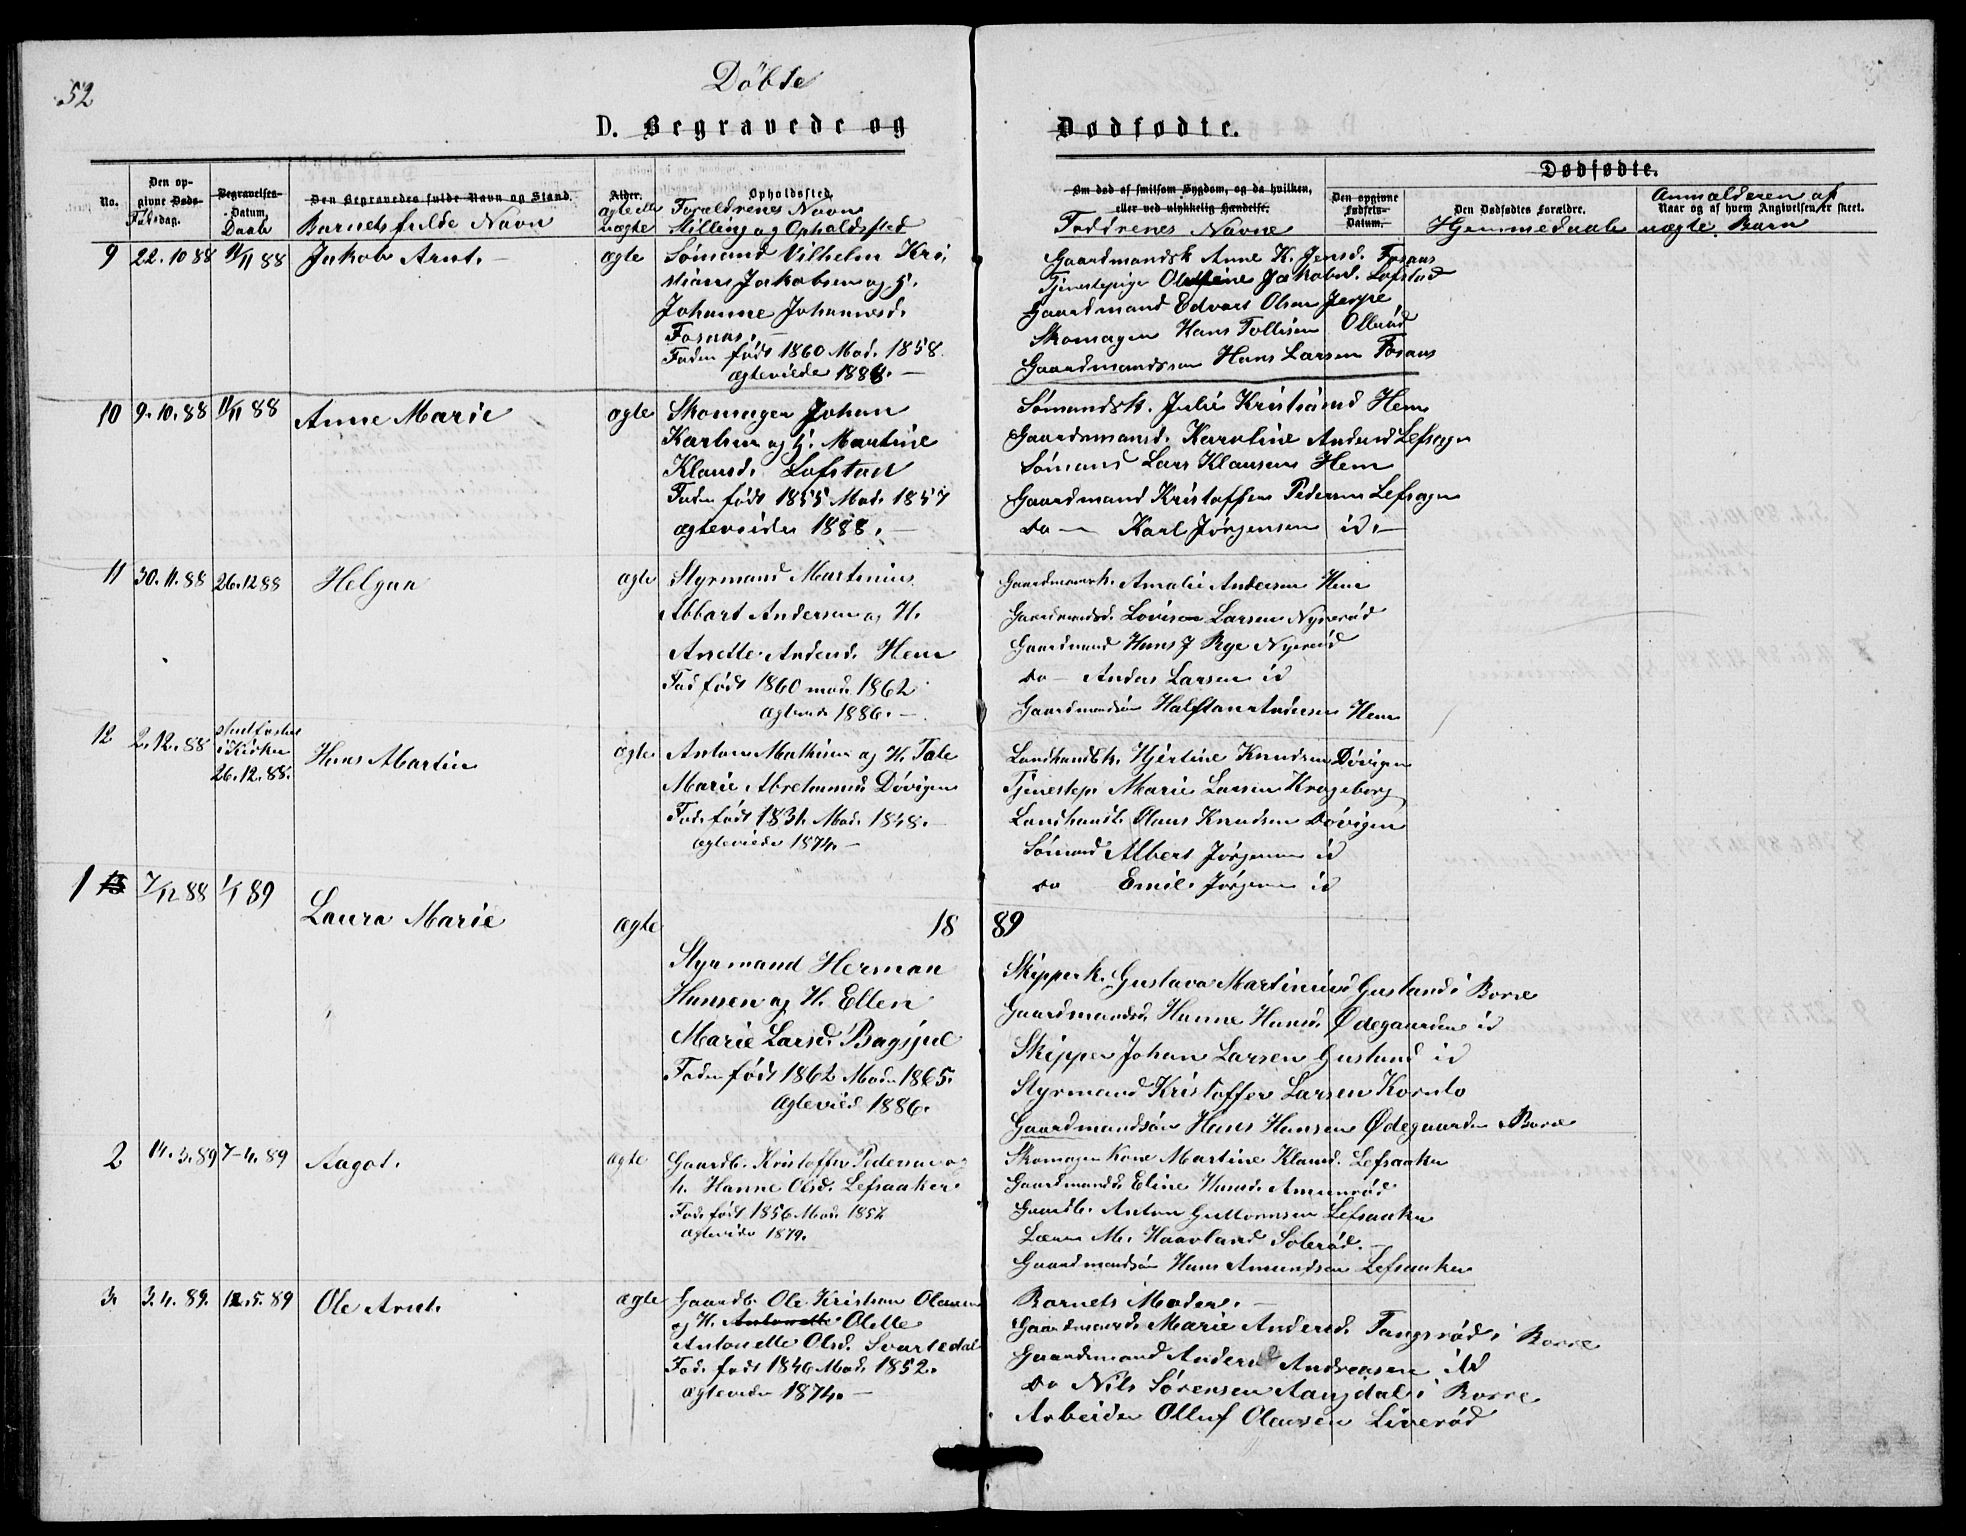 52
Döbte
D. Begravede og Dødfødte.
Dødfødte.
No.
Den op-
givne Døds-
Fødsdag.
Begravelses-
Datum.
Daab
Den Begravedes fulde Navn og Stand.
Barnets fulde Navn
Alder.
ægte eller
uægte
Opholdssted.
Forældrenes Navn
Stilling og Opholdssted
Om død af smitsom Sygdom, og da hvilken,
eller ved ulykkelig Hændelse.
Faddrenes Navne
Den opgivne
Fødsels-
Datum.
Den Dødfødtes Forældre.
Hjemmedaab
Anmelderen af
Naar og af hvem Angivelsen er skeet.
uægte Barn
9 22.10 88 11/11 88 Jakob Arnt. ægte Sømand Vilhelm Kri-
stian Jakobsen og H.
Johanne Johannesd.
Fosnas.
Faden født 1860 Mod. 1858
ægteviede 188
Gaardmandsk Anne K. Jensd. Fosnas
Tjenestepige Jakobsd. Lofstad
Gaardmand Edvart Olsen Jerpe
Skomager Hans Tollisen Ollerød
Gaardmandssøn Hans Larsen Fosnas
10 9.10.88 11/11 88 Anne Marie ægte Skomager Johan
Karlsen og H. Martine
Klausd. Lofstad
Faden født 1855 Mod. 1857
ægteviede 1888.
Sømandsk. Julie Kristiansd Hem
Gaardmansd. Karoline Andersd Lefsager
Sømand Lars Klausen Hem
Gaardmand Kristoffer Pedersen Lefsager
Do Karl Jørgensen id.
11 30.11.88 26.12 88 Helga ægte Styrmand Martinius
Abbort Andersen og H.
Anette Andersd. Hem
Fad født 1860 mod. 1862
ægteviede 1886.
Gaardmandsk. Amalie Andersen Hem
Gaardmandsd. Lovise Larsen Nyerød
Gaardmand Hans J Rye Nyerød
Do Anders Larsen id
Gaardmandsøn Halftan Andersen Hem
12 2.12.88 stadfæstet
i Kirken
26.12.88. Hans Martin ægte Anton Mathisen og H. Tale
Marie Abrahamsd Døvigen
Fad. født 1831. Mod. 1848.
ægteviede 1874.
Landhandlk. Hjertine Knudsen Døvigen
Tjenestep. Marie Larsen Krogeborg
Landhandl. Olaus Knudsen Døvigen
Sømand Albert Jørgensen id
Do Emil Jørgensen id
18 89
1 13 7/12 88 1/1 89 Laura Marie ægte
Styrmand Herman
Hansen og H. Ellen
Marie Larsd. Bagsjul
Faden født 1862 Mod. 1865.
ægteviede 1886.
Skipperk. Gustava Martinius Gustand i Borre
Gaardmandsd. Hanne Hansd. Ødegaarden id
Skipper Johan Larsen Gustand id
Styrmand Kristoffer Larsen Kornlo
Gaardmandsøn Hans Hansen Ødegaarden Borre
2 14.3.89 7-4.89 Aagot. ægte Gaardb. Kristoffer Pedersen og
h. Hanne Olsd. Lefsaaker
Fad. født 1856 Mod. 1857
ægteviede 1879.
Skomager Kone Martine Klausd. Lefsaaker
Gaardmandsd. Eline Hansd. Amunrød
Gaardb. Anton Guttormsen Lefsaaker
Lærer M. Haavland Solerød.
Gaardmandsøn Hans Amundsen Lefsaaker
3. 3.4.89. 12.5.89 Ole Arnt. ægte Gaardb. Ole Kristian Olausen
og H. Antonette Olette
Antonette Olsd. Svartedal
Fad. født 1846 Mod. 1852.
ægteviede 1874.
Barnets Moder.
Gaardmandsd. Marie Andersd. Tangsrød i Borre
Gaardmand Anders Andreasen id
Do Nils Sørensen Aangdal i Borre
Arbeider Olluf Olausen Liverød